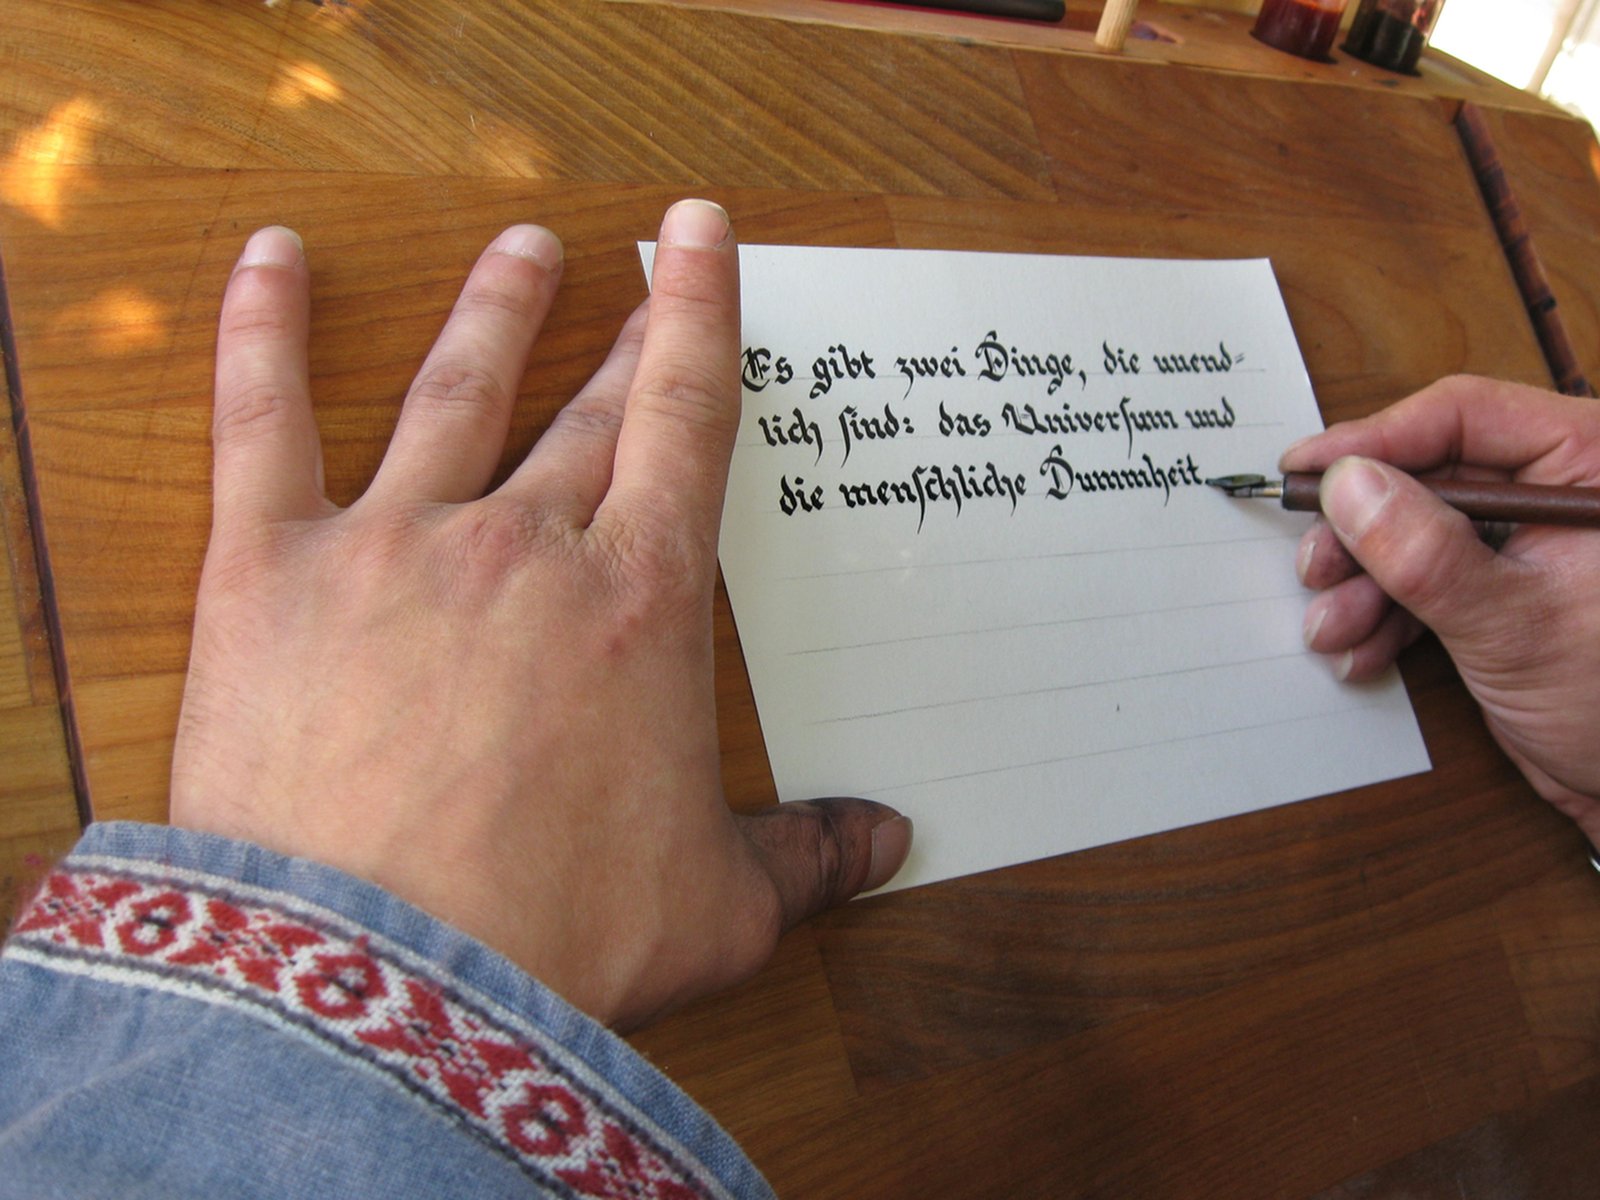 Es gibt zwei Dinge, die unend=
lich sind: das Universum und
die menschliche Dummheit.